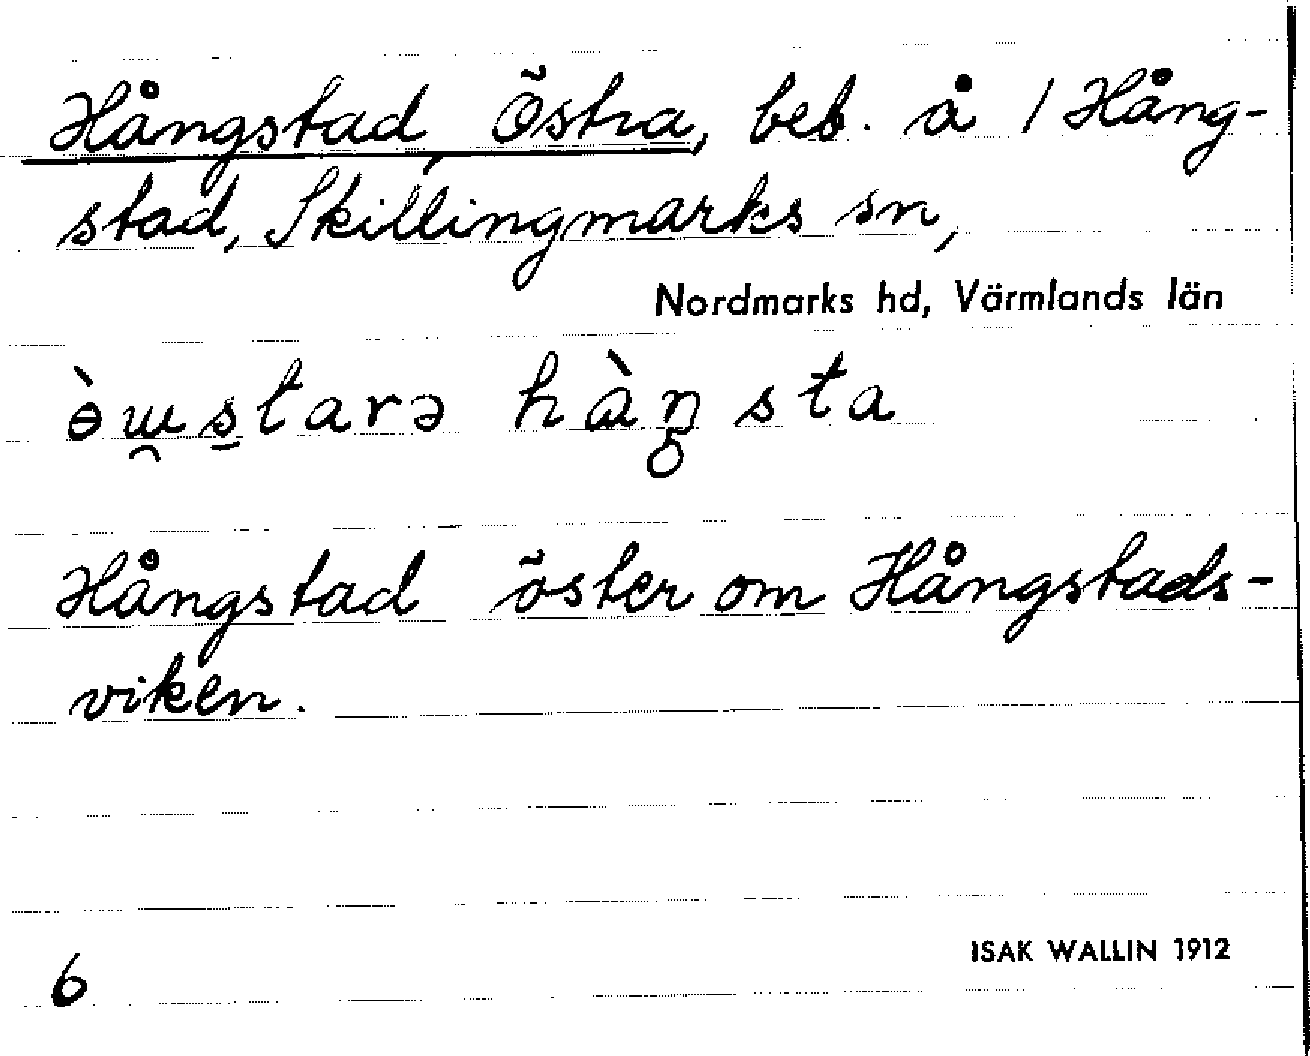 Hångstad, Östra, beb. å 1 Hång-
stad, Skillingmarks sn,
Nordmarks hd, Värmlands län
hå̀ŋsta
Hångstad öster om Hångstads-
viken.
ISAK WALLIN 1912
6